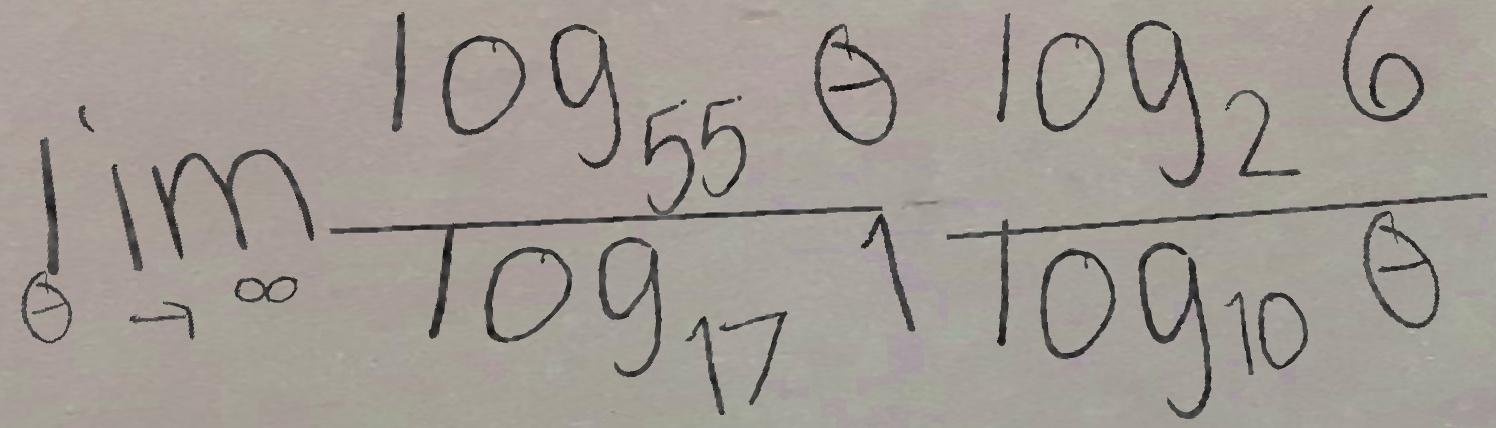 \lim_{\theta \to \infty} \frac{\log_{55} \theta}{\log_{17} 1} \frac{\log_{2} 6}{\log_{10} \theta}